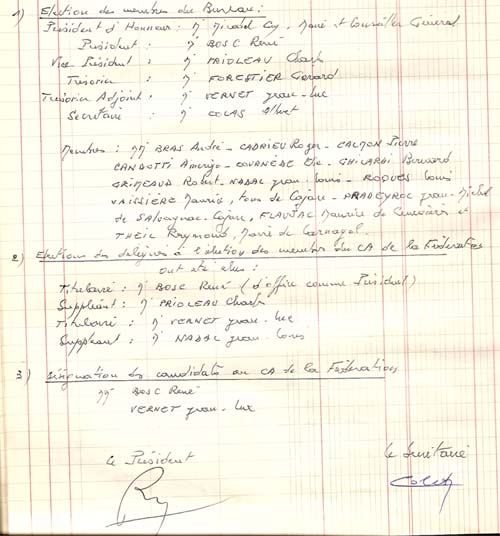 1) Election des membres du Bureau :
Président d'Honneur : Mr Miratel Guy, Maire et Conseiller Général
Président : Mr BOSC René
Vice Président : Mr PRIOLEAU Charles
Trésorier : Mr FORESTIER Gérard
Trésorier Adjoint : Mr VERNET Jean-Luc
Secrétaire : Mr COLAS Albert
Membres : MM BRAS André - CADRIEU Roger - CALMON Pierre
CANDOTTI Amerigo - COURNÈDE Elie - GHILARDI Bernard
GRIMEAUD Robert - NADAL Jean Louis - ROQUES Louis
VAISSIÈRE Maurice, tous de Cajarc - PRADEYROL Jean-Michel
de Salvagnac-Cajarc, FLAUJAC Maurice de et
THEIL Raymond, Maire de Larnagol.
2) Elections des délégués à l'élection des membres du CA de la Fédération
ont été élus :
Titulaire : Mr BOSC René (d'office comme Président)
Suppléant : Mr PRIOLEAU Charles
Titulaire : Mr VERNET Jean-Luc
Suppléant : Mr NADAL Jean-Louis
3) Désignation des candidats au CA de la Fédération
MM BOSC René
VERNET Jean-Luc
Le Président
Le Secrétaire